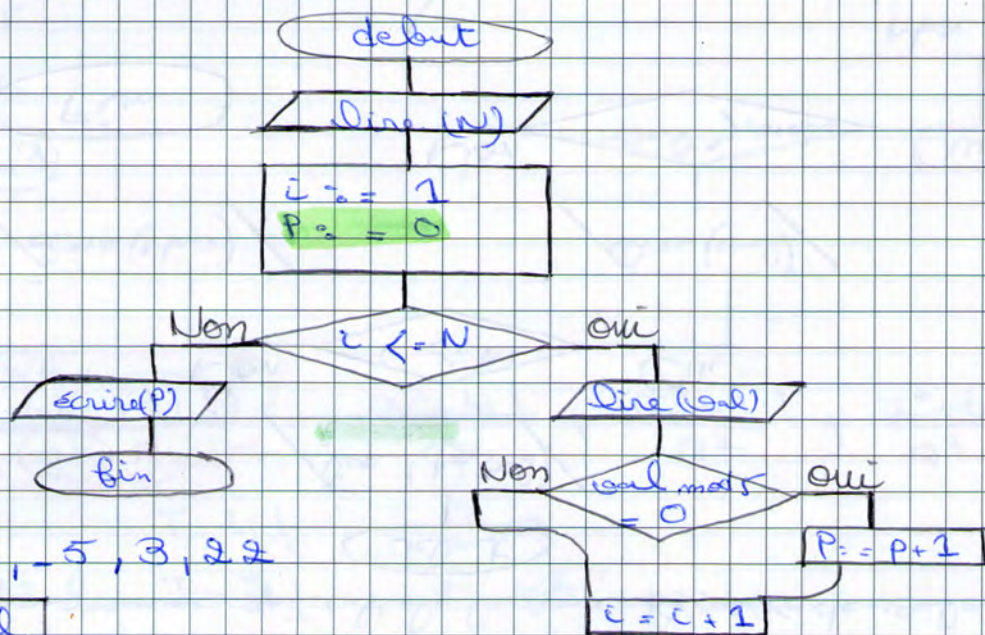 debut
lire (N)
i := 1
P := 0
Non
i <= N
oui
écrire(P)
lire (val)
fin
Non
val mod5
= 0
oui
P := P+1
, -5, 3, 22
i = i + 1